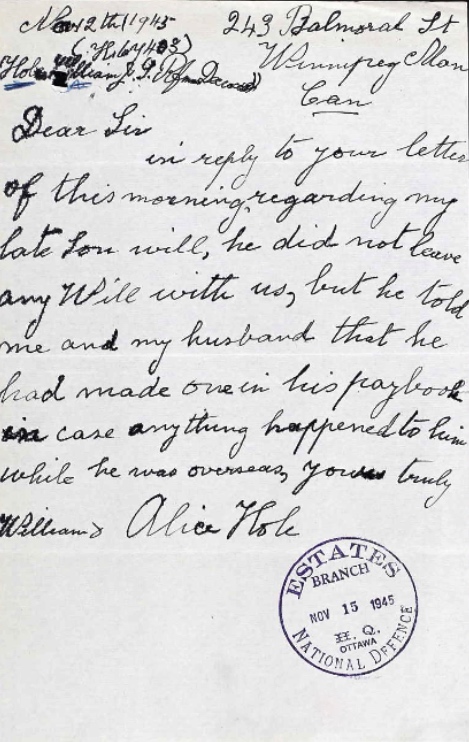 Nov 12th 1945
243 Balmoral St
Winnipeg Man
Can
William J. G. Rfmn Deceased
Dear Sir
in reply to your letter
of this morning, regarding my
late Son will, he did not leave
any Will with us, but he told
me and my husband that he
had made one in his paybook
in case anything happened to him
while he was overseas, yours truly
William & Alice Hole
ESTATES
BRANCH
NOV 15 1945
H. Q.
OTTAWA
NATIONAL DEFENCE